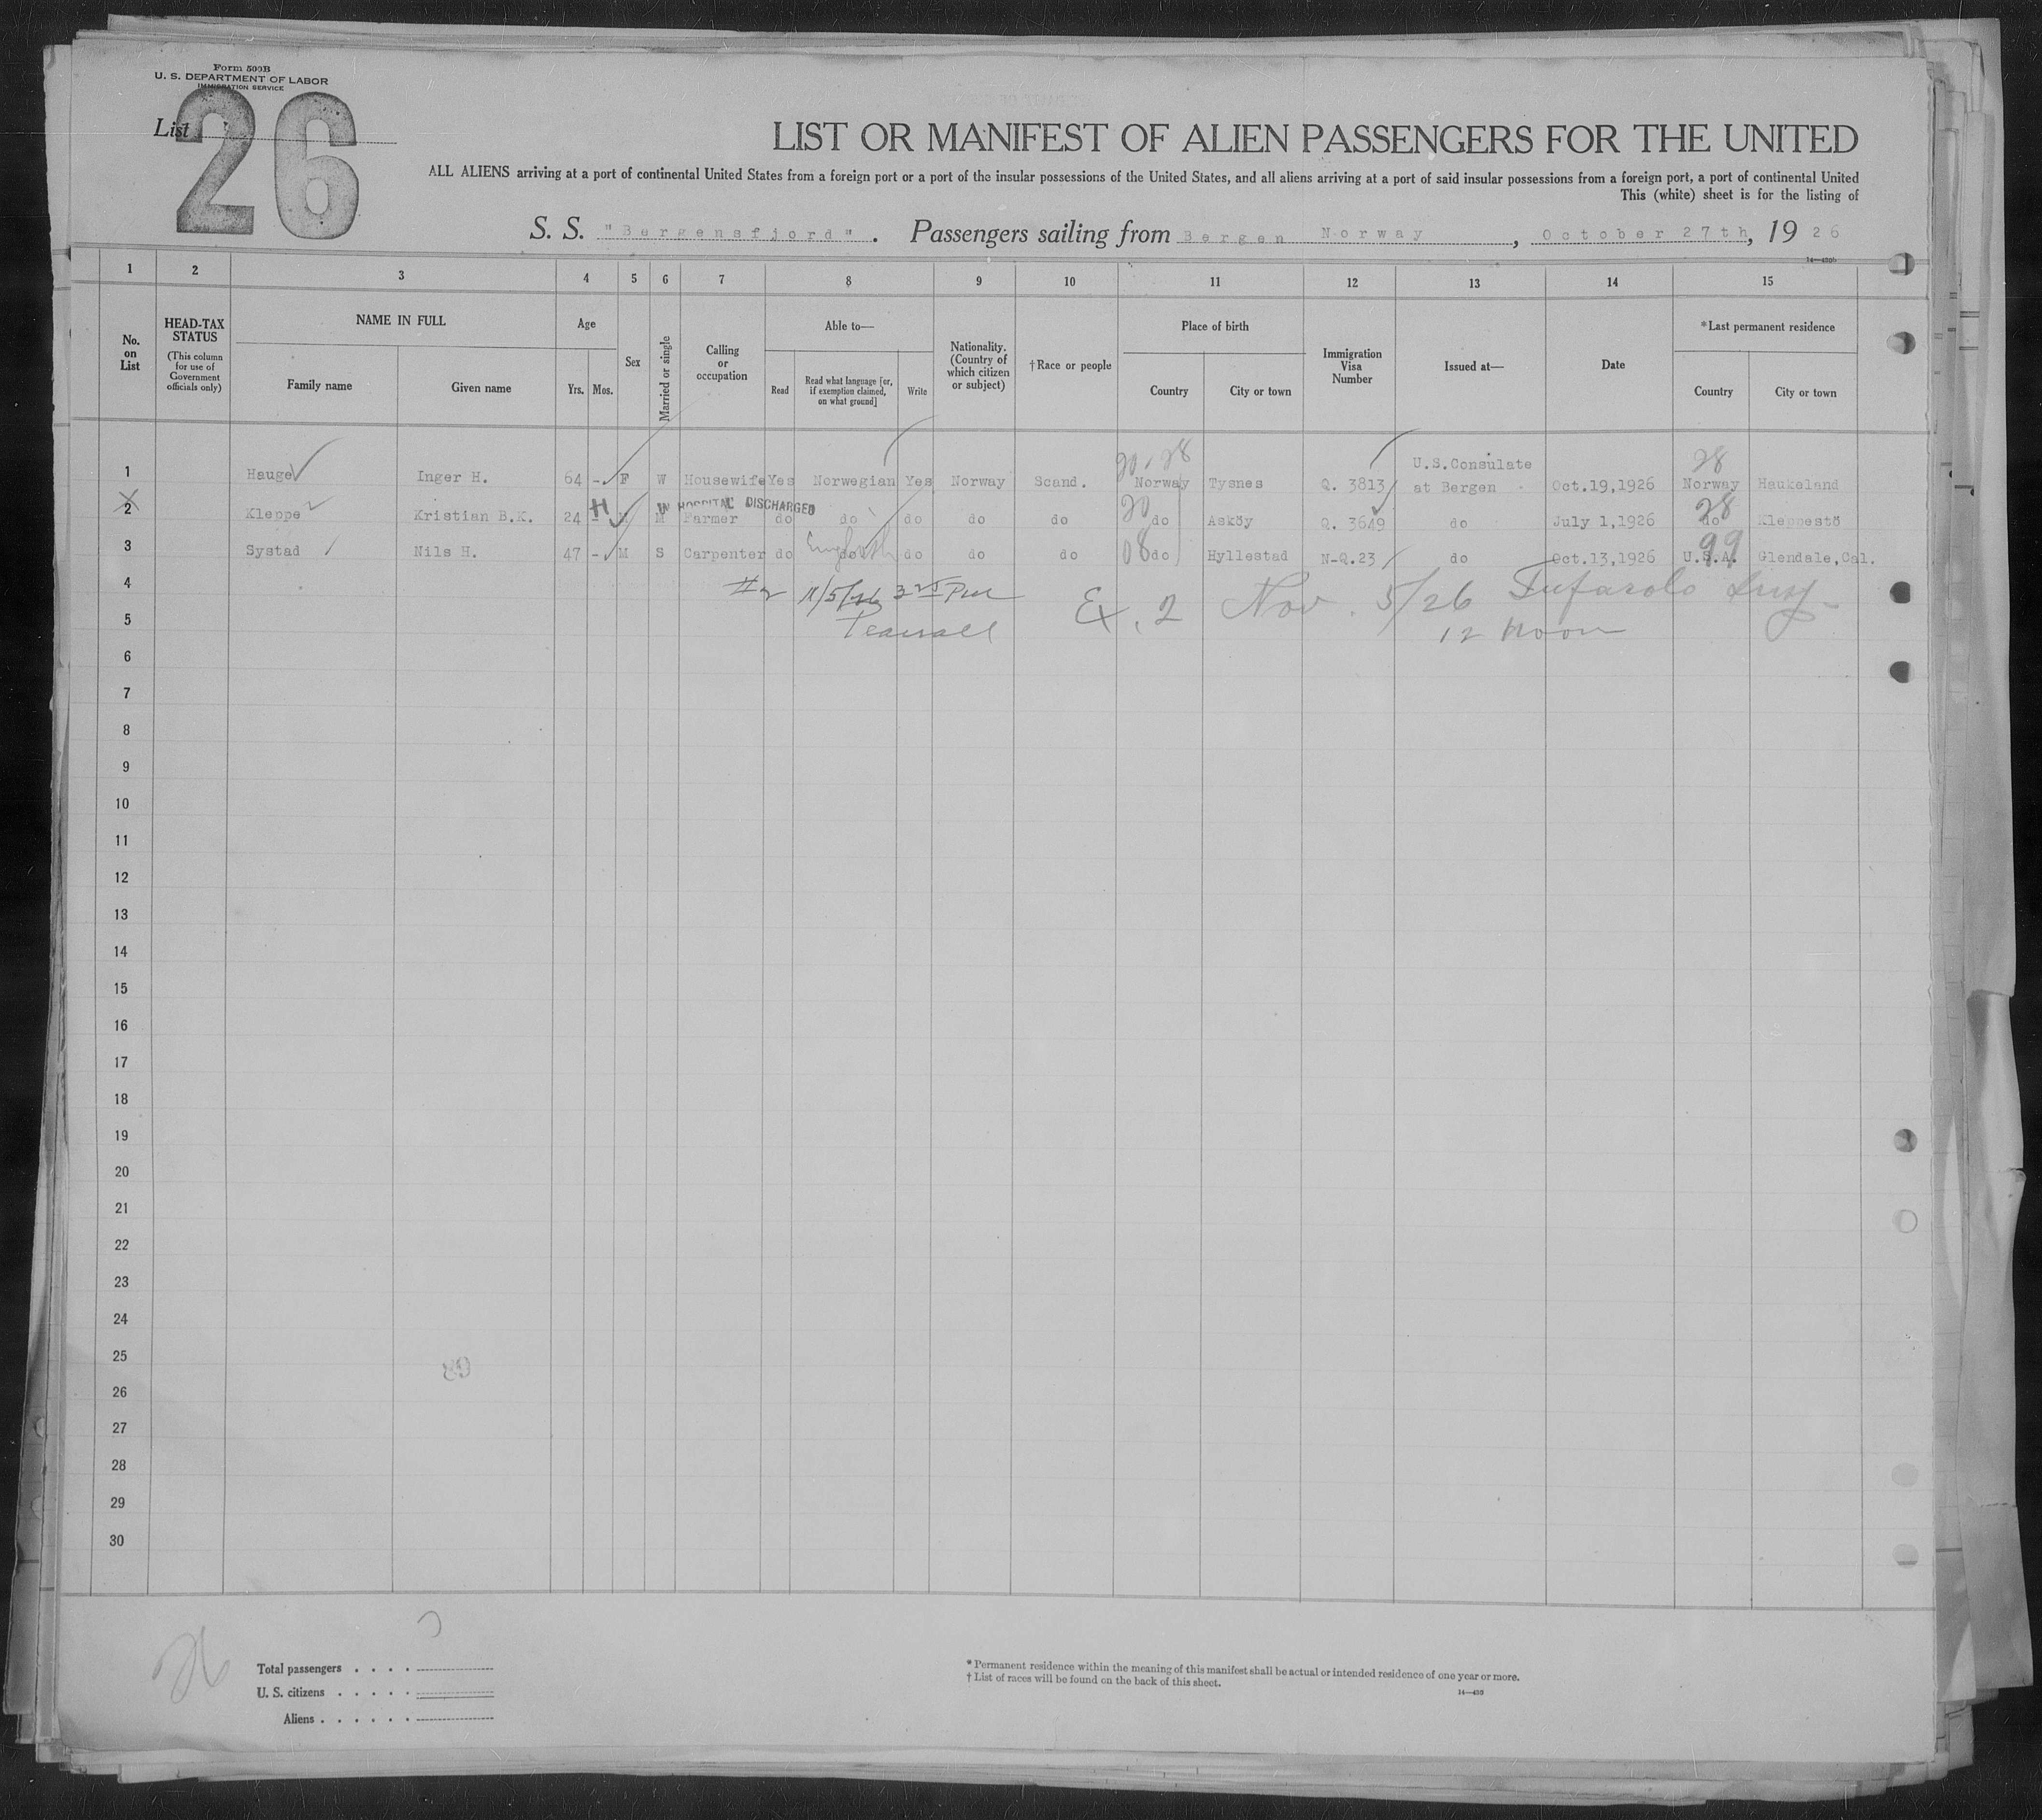 Form 500B
U. S. DEPARTMENT OF LABOR
IMMIGRATION SERVICE
List 26
LIST OR MANIFEST OF ALIEN PASSENGERS FOR THE UNITED
ALL ALIENS arriving at a port of continental United States from a foreign port or a port of the insular possessions of the United States, and all aliens arriving at a port of said insular possessions from a foreign port, a port of continental United
This (white) sheet is for the listing of
S. S. "Bergensfjord". Passengers sailing from Bergen Norway, October 27th, 1926
14—430b
1 2 3 4 5 6 7 8 9 10 11 12 13 14 15
No. on List
HEAD-TAX STATUS (This column for use of Government officials only)
NAME IN FULL
Family name Given name
Age
Yrs. Mos.
Sex
Married or single
Calling or occupation
Able to—
Read
Read what language [or, if exemption claimed, on what ground]
Write
Nationality. (Country of which citizen or subject)
†Race or people
Place of birth
Country City or town
Immigration Visa Number
Issued at—
Date
*Last permanent residence
Country City or town
20.28 28
1 Hauge Inger H. 64 - F W Housewife Yes Norwegian Yes Norway Scand. Norway Tysnes Q. 3813 U.S.Consulate at Bergen Oct.19,1926 Norway Haukeland
H IN HOSPITAL DISCHARGED 20 28
2 Kleppe Kristian B.K. 24 - M M Farmer do do do do do do Asköy Q. 3649 do July 1,1926 do Kleppestö
08 99
3 Systad Nils H. 47 - M S Carpenter do do do do do do Hyllestad N-Q.23 do Oct.13,1926 U.S.A. Glendale,Cal.
4 #2 11/5/26 3 25 PM Ex. 2 Nov. 5/26
5 12 noon
6
7
8
9
10
11
12
13
14
15
16
17
18
19
20
21
22
23
24
25
26
27
28
29
30
26
Total passengers . . . .
U. S. citizens . . . . .
Aliens . . . . . .
* Permanent residence within the meaning of this manifest shall be actual or intended residence of one year or more.
† List of races will be found on the back of this sheet.
14—430